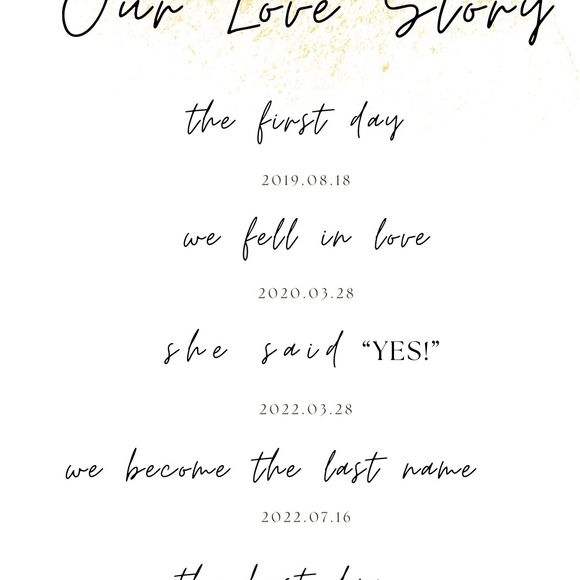 Our Love Story
the first day
2019.08.18
we fell in love
2020.03.28
she said “YES!”
2022.03.28
we become the last name
2022.07.16
the best day